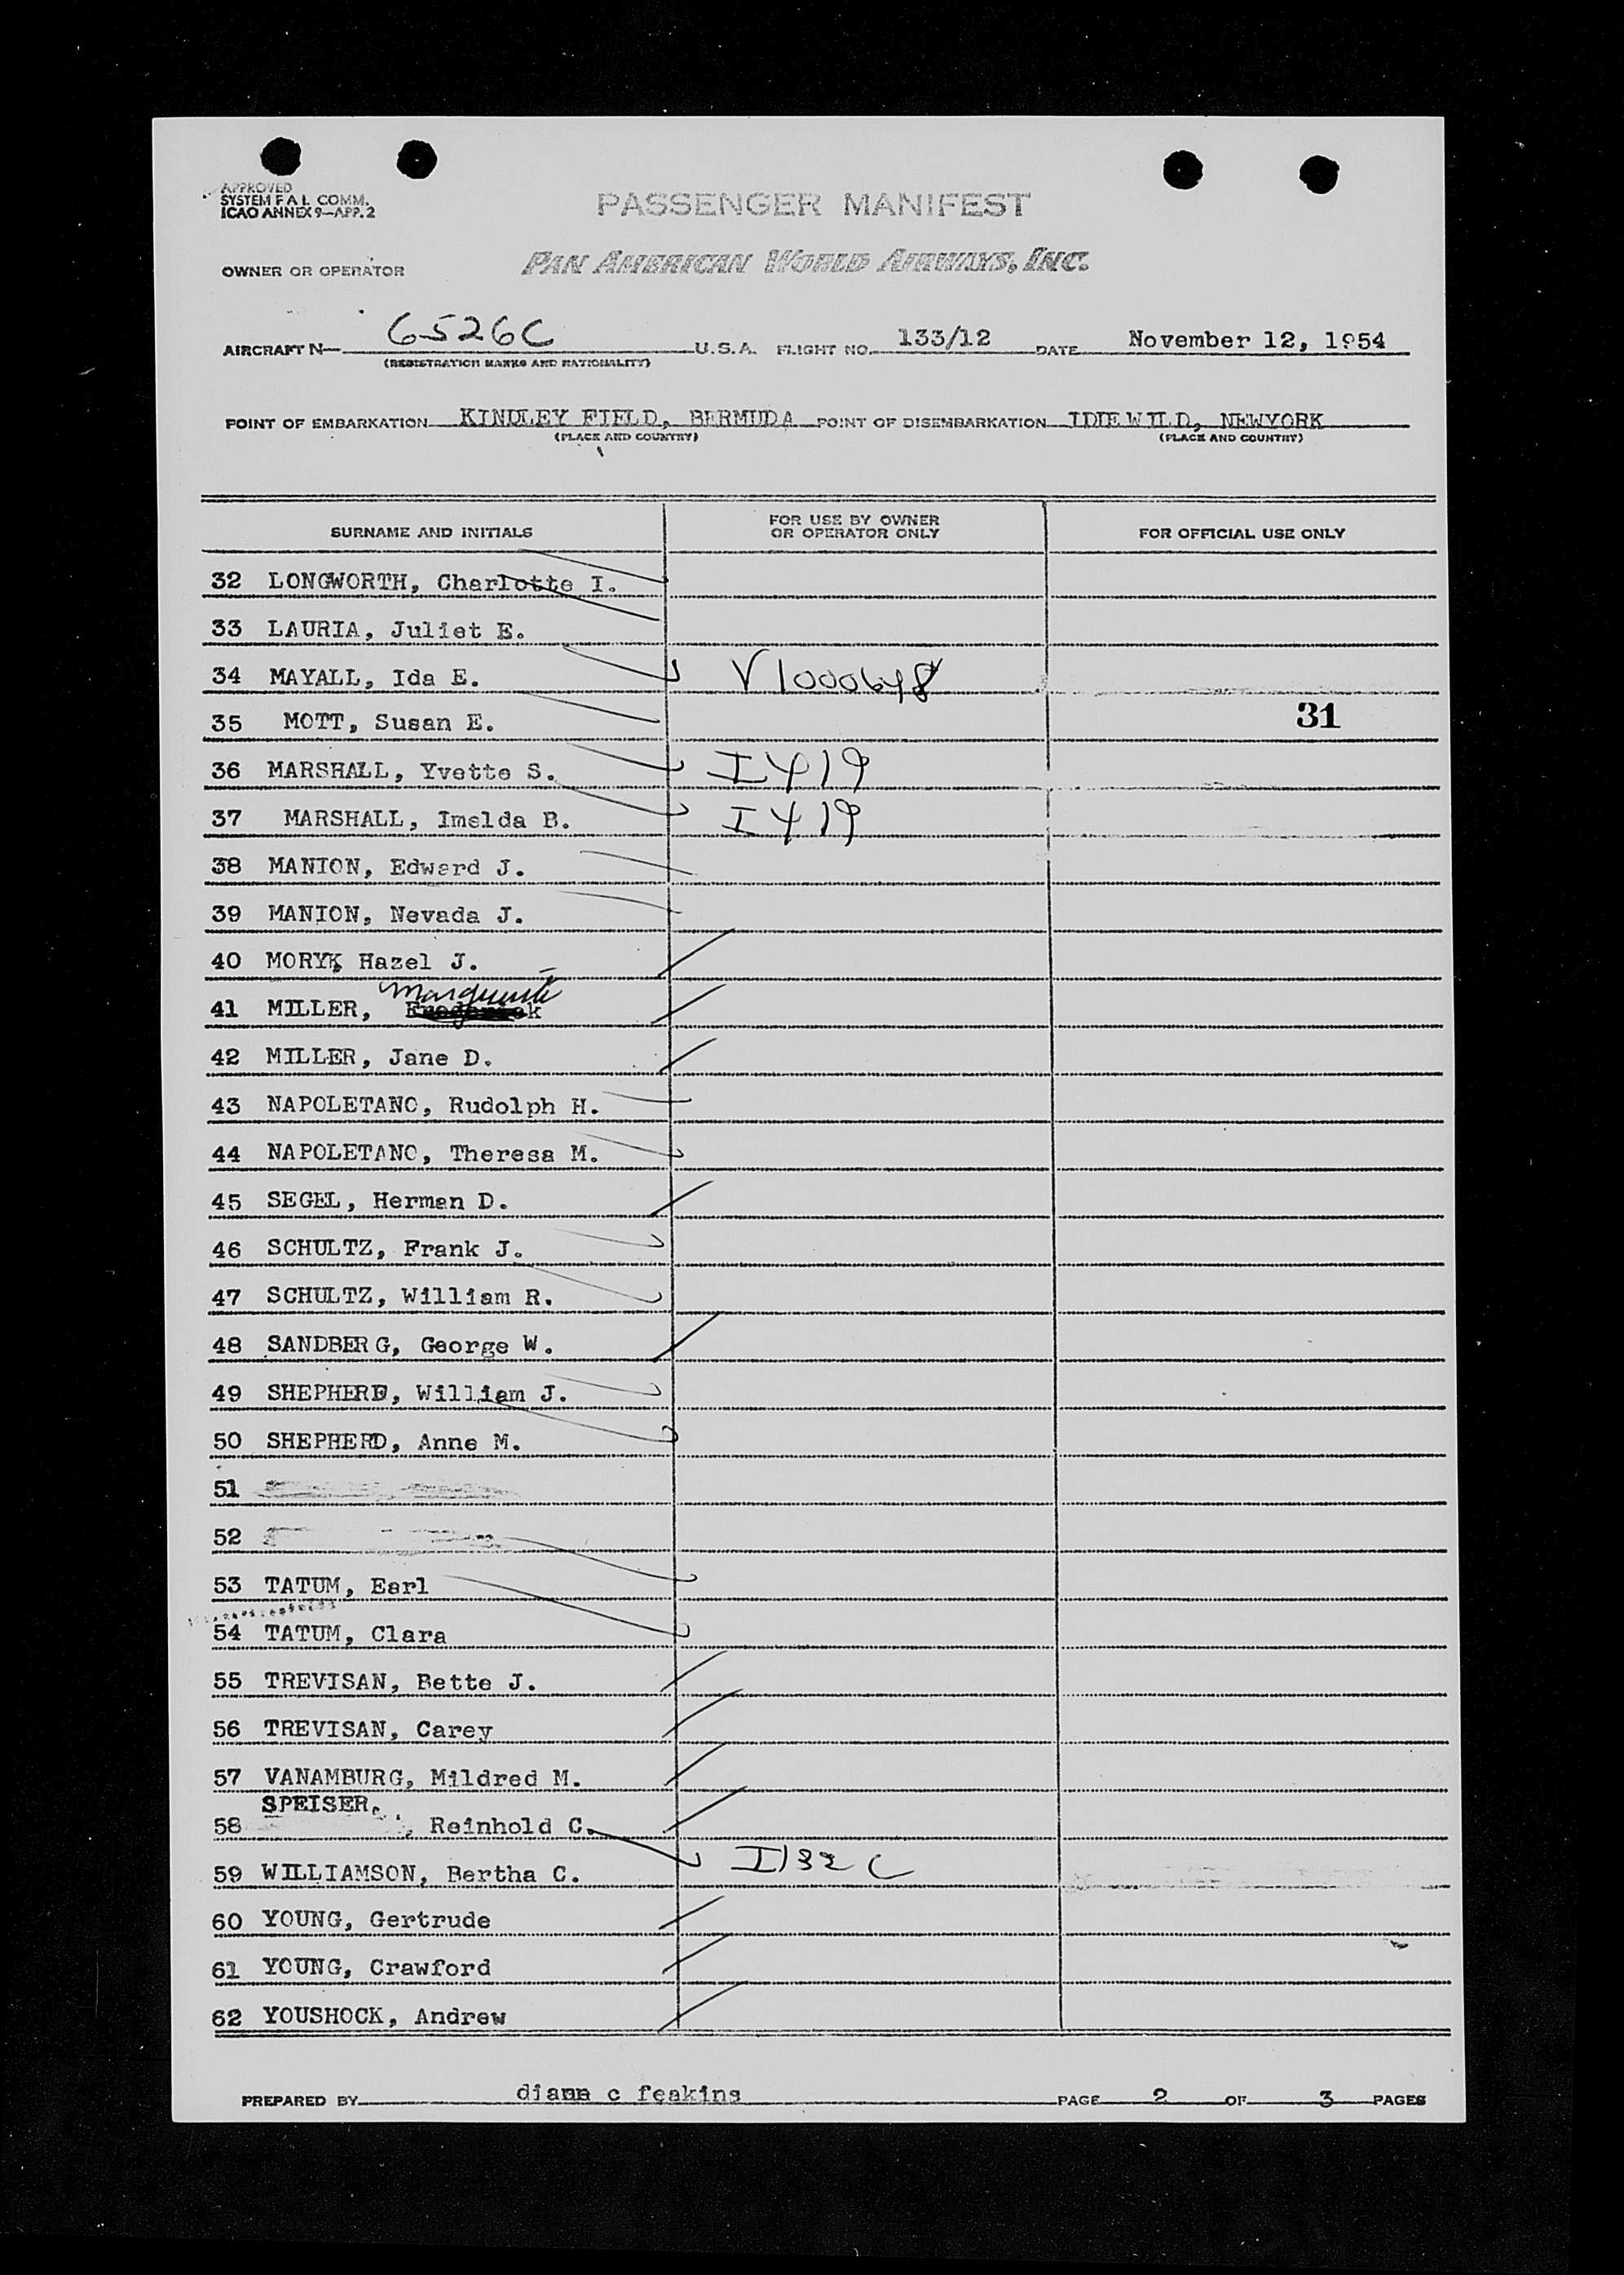 APPROVED
SYSTEM F A L COMM.
ICAO ANNEX 9—APP. 2
PASSENGER MANIFEST
OWNER OR OPERATOR PAN AMERICAN WORLD AIRWAYS, INC.
AIRCRAFT N— 6526C U.S.A. FLIGHT NO. 133/12 DATE November 12, 1954
(REGISTRATION MARKS AND NATIONALITY)
POINT OF EMBARKATION KINDLEY FIELD, BERMUDA POINT OF DISEMBARKATION IDLEWILD, NEWYORK
(PLACE AND COUNTRY) (PLACE AND COUNTRY)
SURNAME AND INITIALS FOR USE BY OWNER OR OPERATOR ONLY FOR OFFICIAL USE ONLY
32 LONGWORTH, Charlotte I.
33 LAURIA, Juliet E.
34 MAYALL, Ida E. V1000648
35 MOTT, Susan E. 31
36 MARSHALL, Yvette S. I 419
37 MARSHALL, Imelda B. I 419
38 MANION, Edward J.
39 MANION, Nevada J.
40 MORYK, Hazel J.
Marguerite
41 MILLER, Frederick
42 MILLER, Jane D.
43 NAPOLETANO, Rudolph H.
44 NAPOLETANO, Theresa M.
45 SEGEL, Herman D.
46 SCHULTZ, Frank J.
47 SCHULTZ, William R.
48 SANDBERG, George W.
49 SHEPHERD, William J.
50 SHEPHERD, Anne M.
51
52
53 TATUM, Earl
54 TATUM, Clara
55 TREVISAN, Bette J.
56 TREVISAN, Carey
57 VANAMBURG, Mildred M.
SPEISER,
58 , Reinhold C.
59 WILLIAMSON, Bertha C. I 132 C
60 YOUNG, Gertrude
61 YOUNG, Crawford
62 YOUSHOCK, Andrew
PREPARED BY diana c feakins PAGE 2 OF 3 PAGES